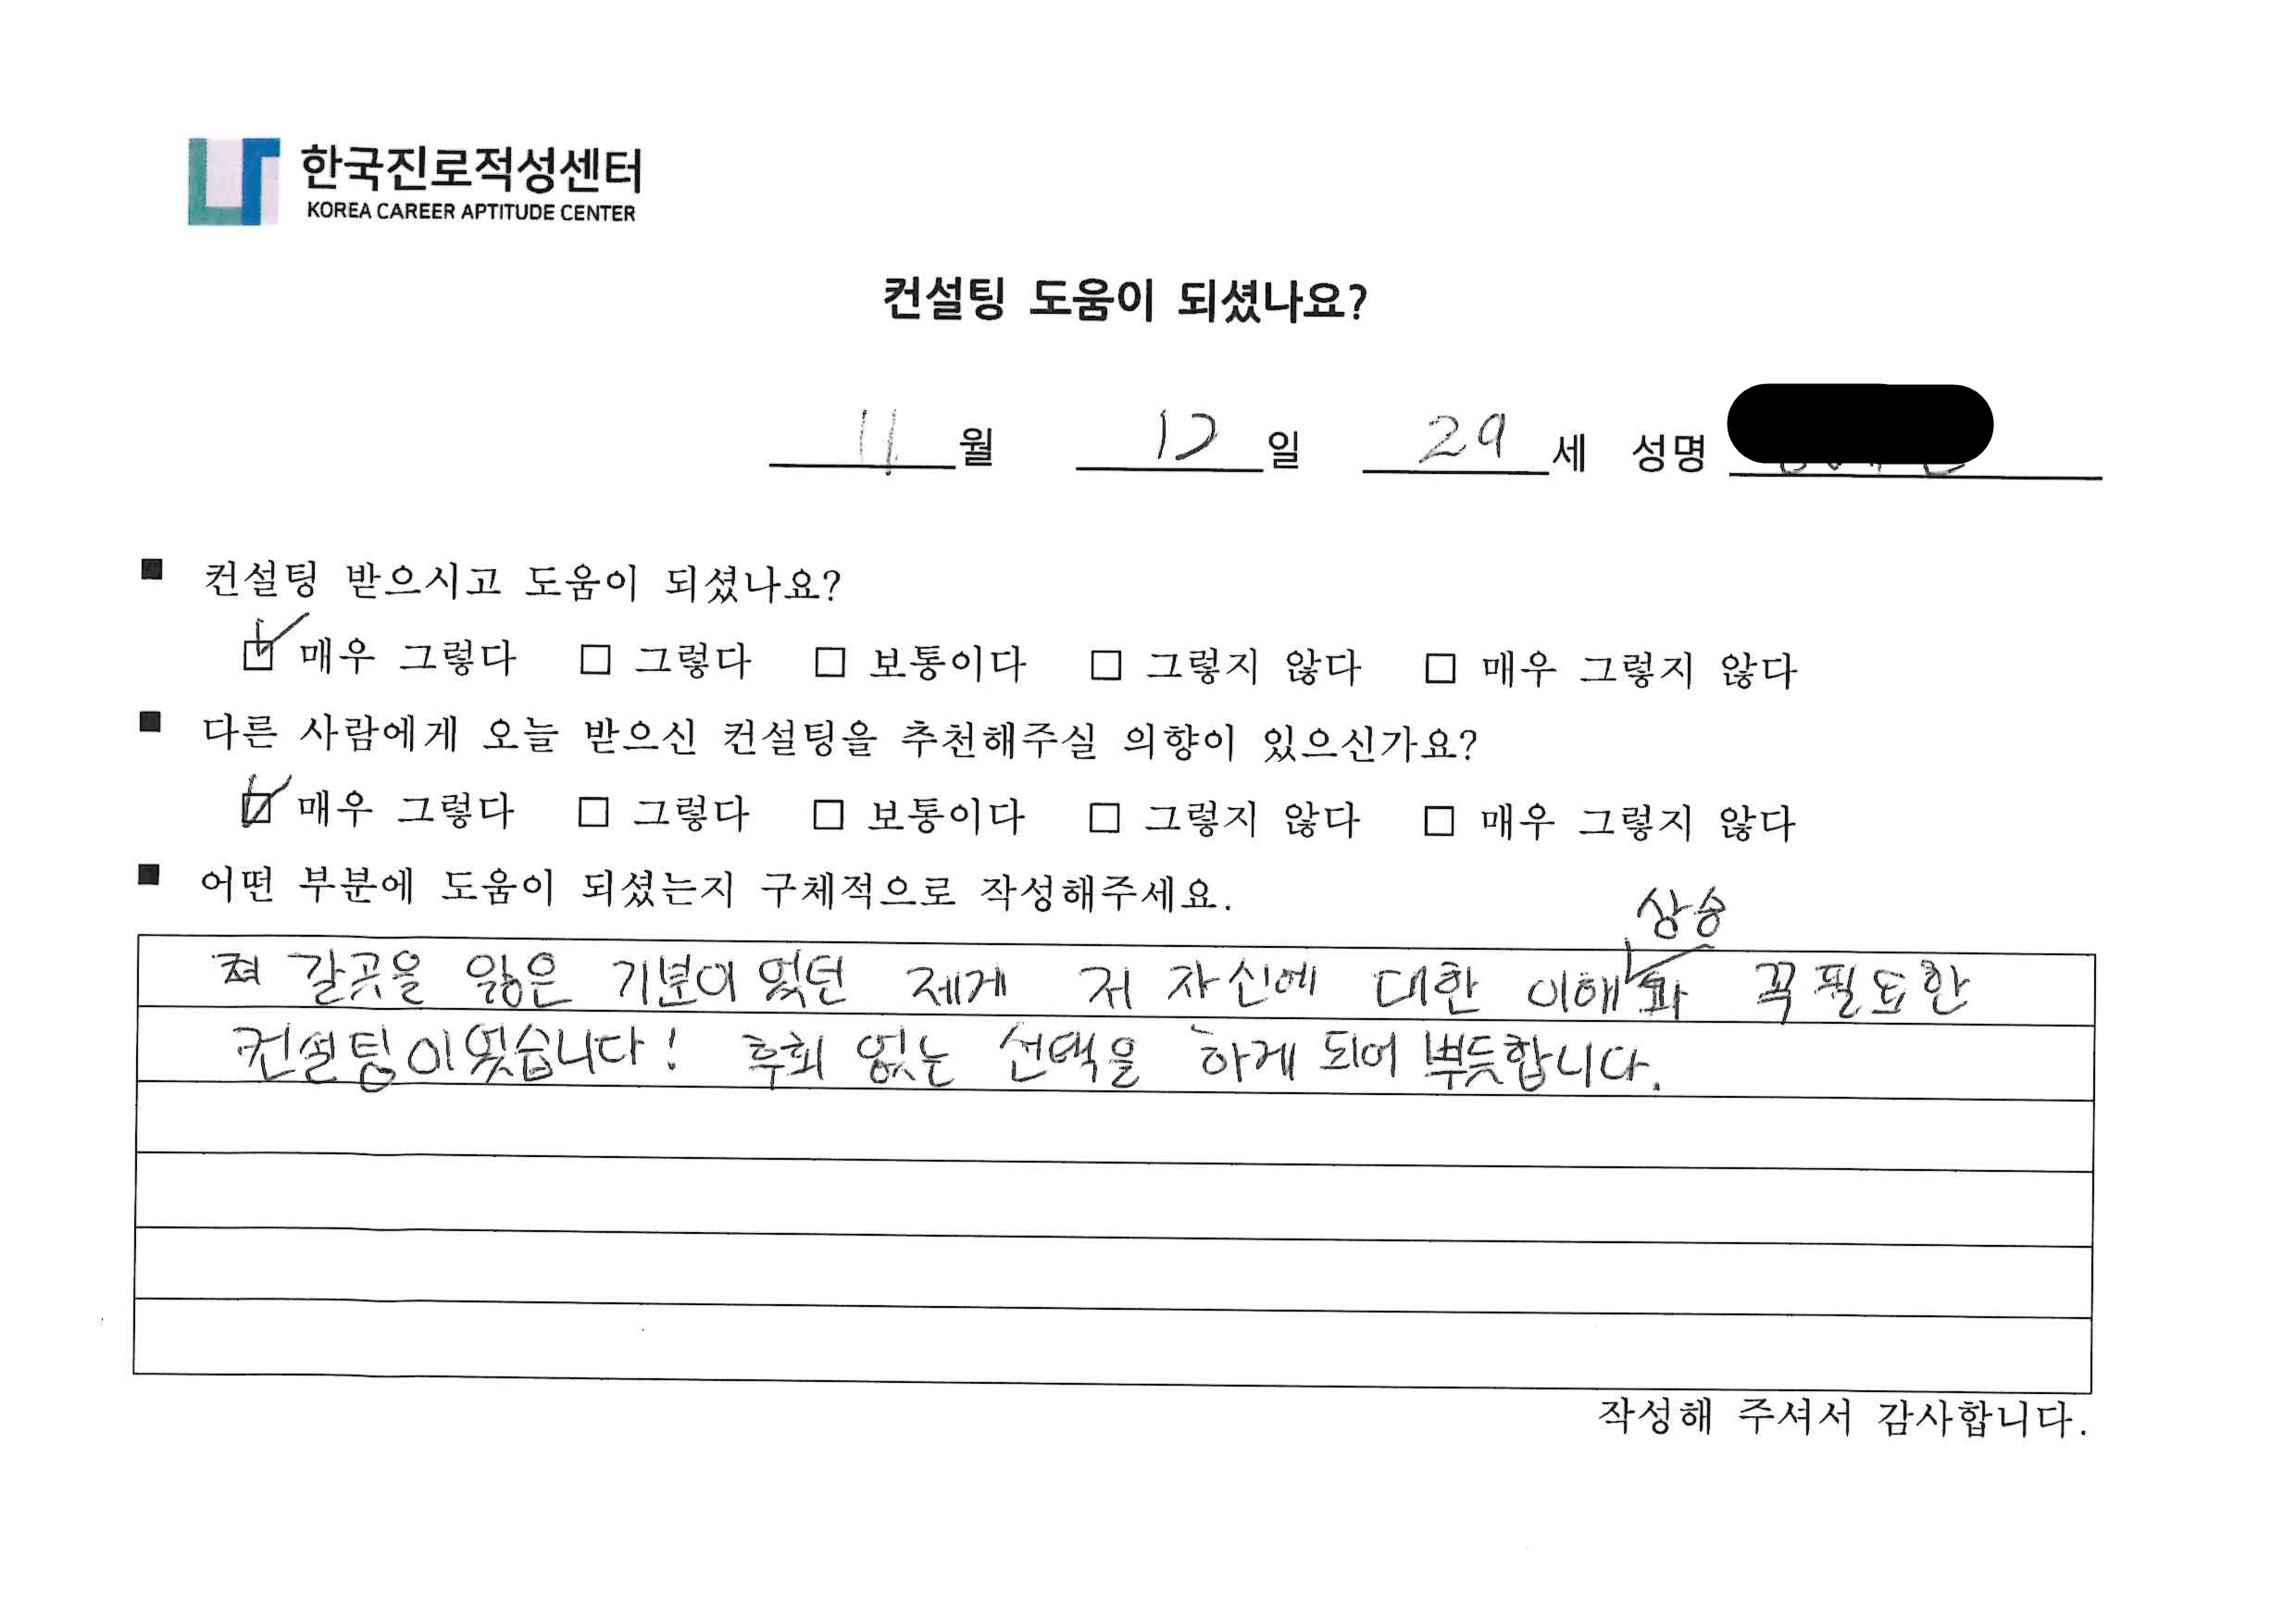 한국진로적성센터
KOREA CAREER APTITUDE CENTER
컨설팅 도움이 되셨나요?
11 월 12 일 29 세 성명
■ 컨설팅 받으시고 도움이 되셨나요?
☑ 매우 그렇다 □ 그렇다 □ 보통이다 □ 그렇지 않다 □ 매우 그렇지 않다
■ 다른 사람에게 오늘 받으신 컨설팅을 추천해주실 의향이 있으신가요?
☑ 매우 그렇다 □ 그렇다 □ 보통이다 □ 그렇지 않다 □ 매우 그렇지 않다
■ 어떤 부분에 도움이 되셨는지 구체적으로 작성해주세요.
상승
갈곳을 잃은 기분이었던 제게 저 자신에 대한 이해 꼭 필요한
컨설팅이었습니다! 후회 없는 선택을 하게 되어 뿌듯합니다.
작성해 주셔서 감사합니다.